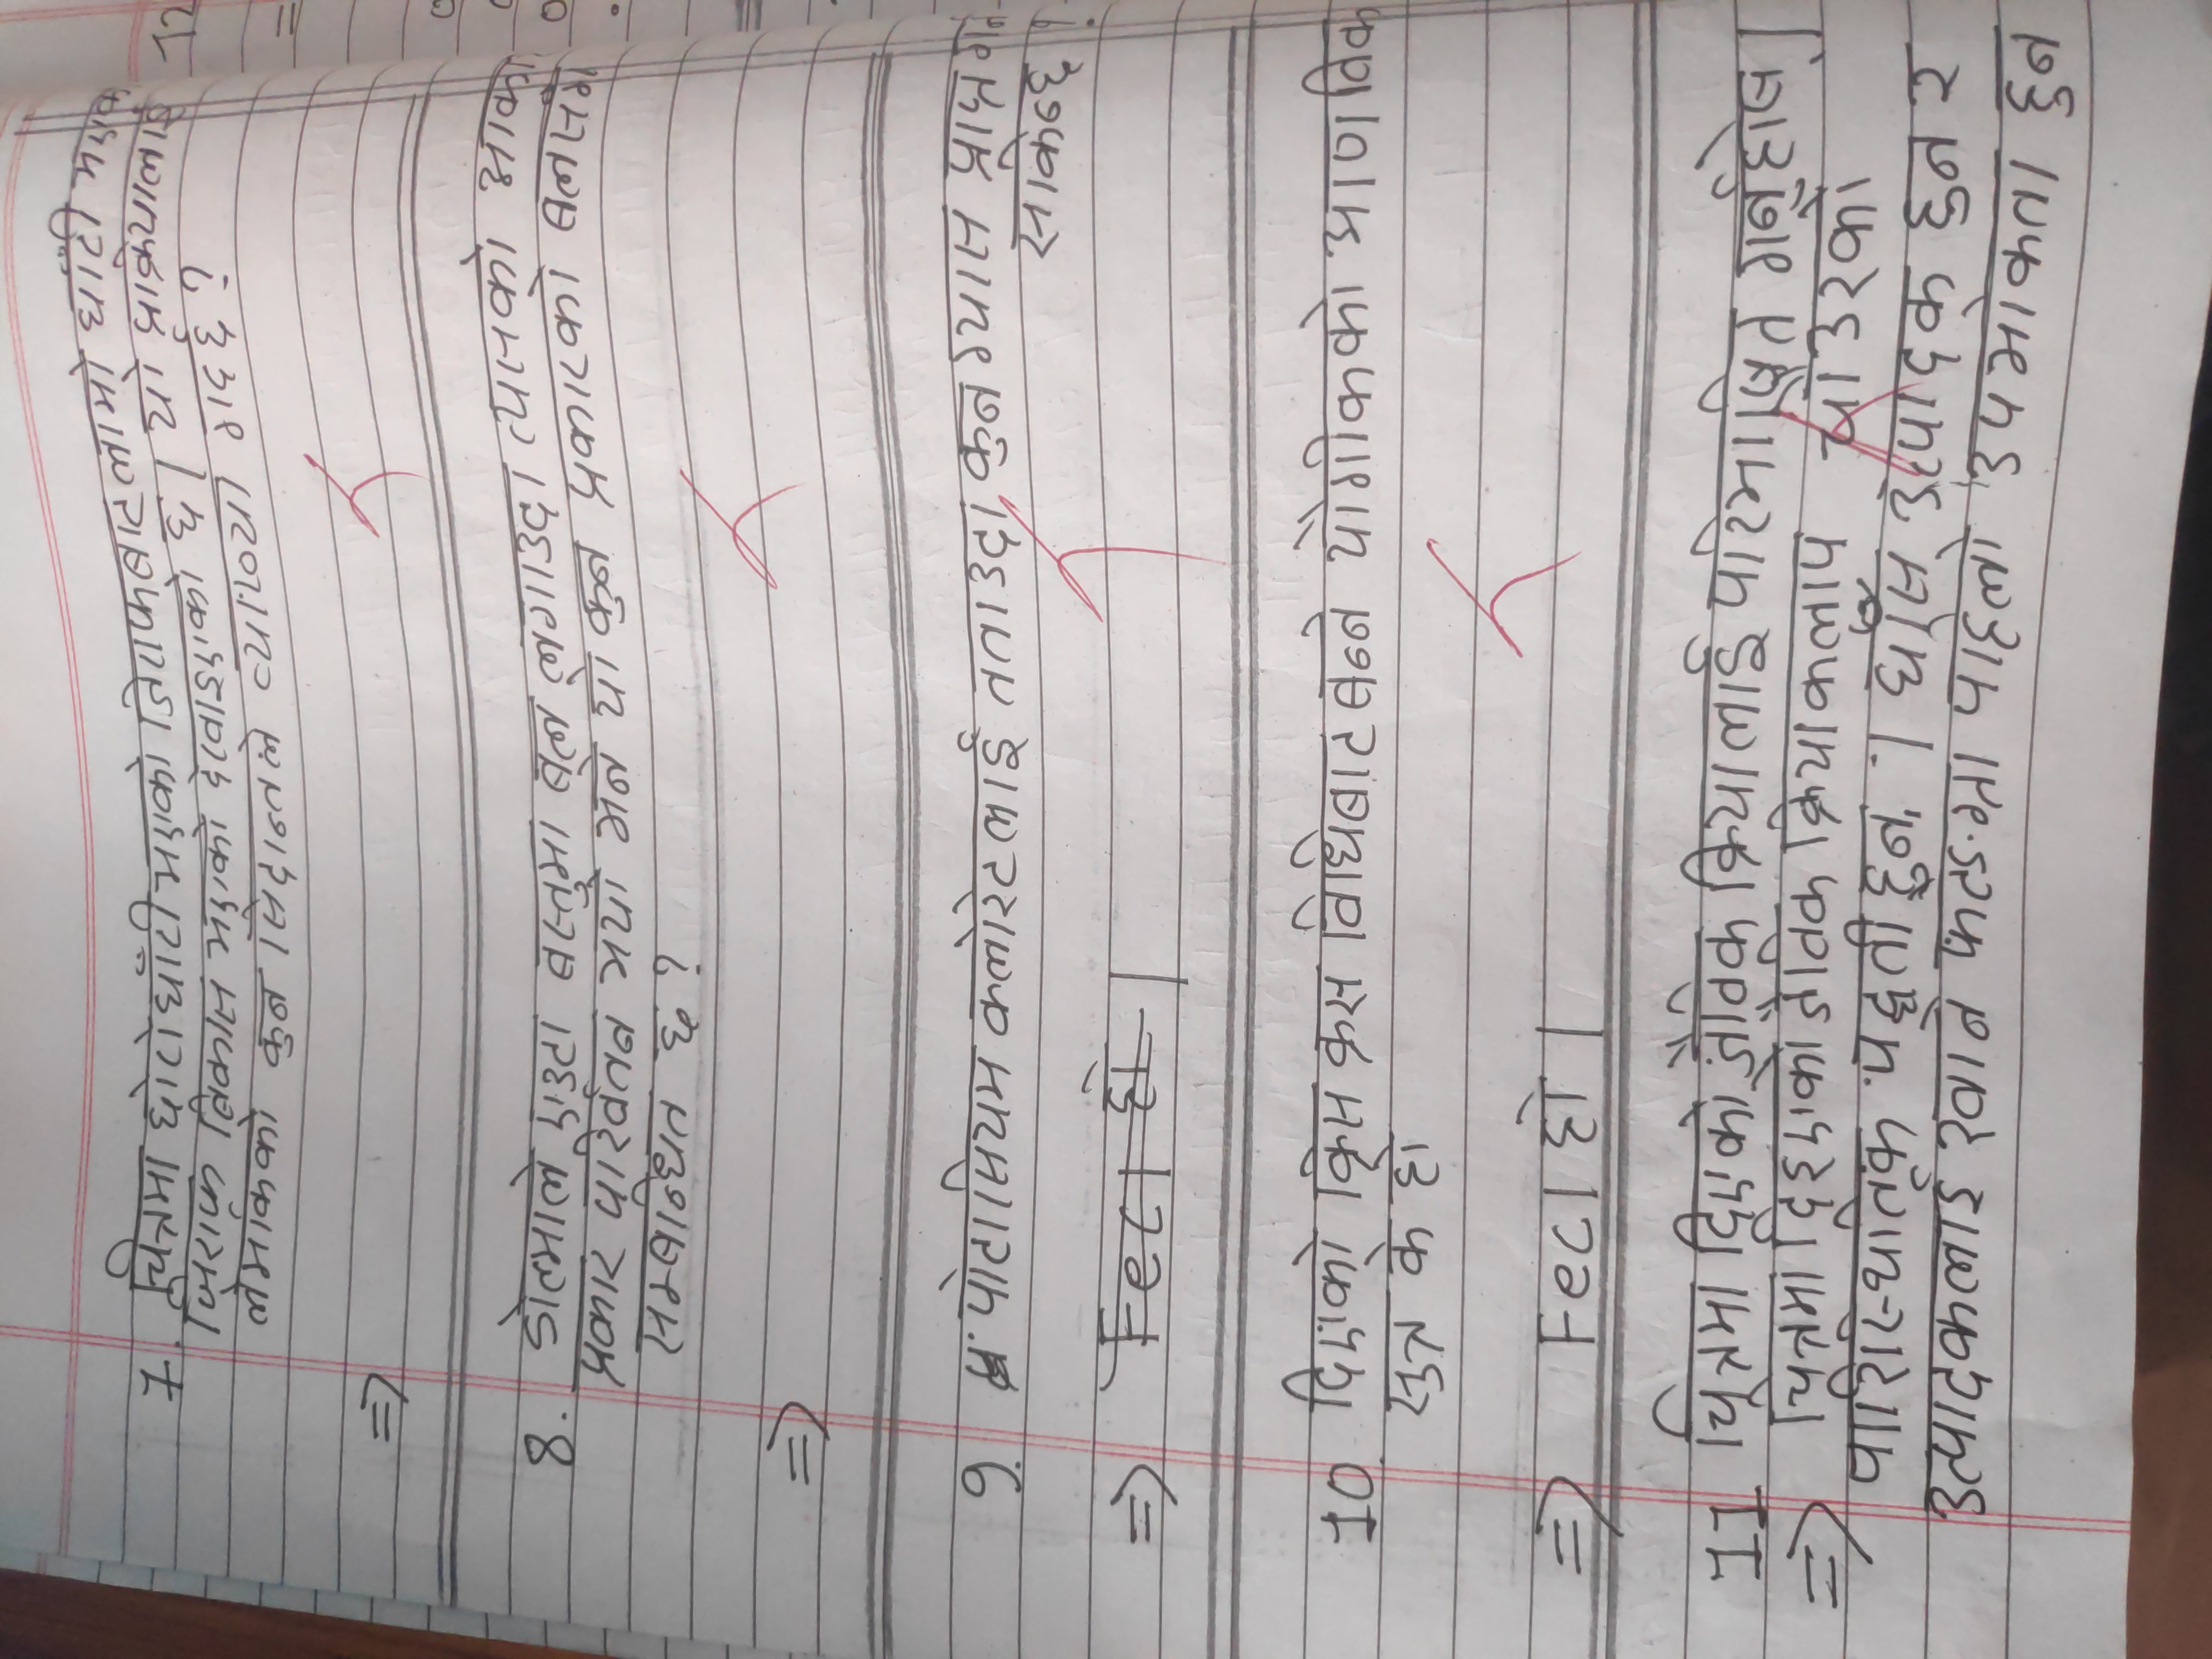 7. चित्रमा छोटो घाँटी भएको जिराफबाट लामो घाँटी भएक
जिराफ विकास भएको देखाइएको छ। यो प्रक्रियालाई
लेमार्कको कुन सिद्दान्तले व्याख्या गदर्छ ?
=>
8. डोल्माले एउटा बस्तुमा बल लगाउदा त्यसको आका
प्रकार परिर्वतन भयो भने यो कुन प्रकारको बलसँग
सम्बन्धित छ ?
=>
9. पोटासियम क्लोरेटलाई तताउदा कुन ग्यास प्राप्त गर्न
सकिन्छ ?
=> FeCl हो ।
10. दिएको क्रिस क्रस विधिबाट बन्ने यौगीकको आणविक
सुत्र के हो
=> FeCl हो ।
11 चित्रमा दिएको जैविक क्रियालाई परिभाषित गर्नुहोस् ।
=> चित्रमा दिइएको जैविक क्रियाकलाप चौउरको
पारिस्थितिक पद्धती हुन् । घाँस उत्पादक हुन र
उत्पादकलाई खाने फटङग्रा पहिलो उपभोकता हुन
12